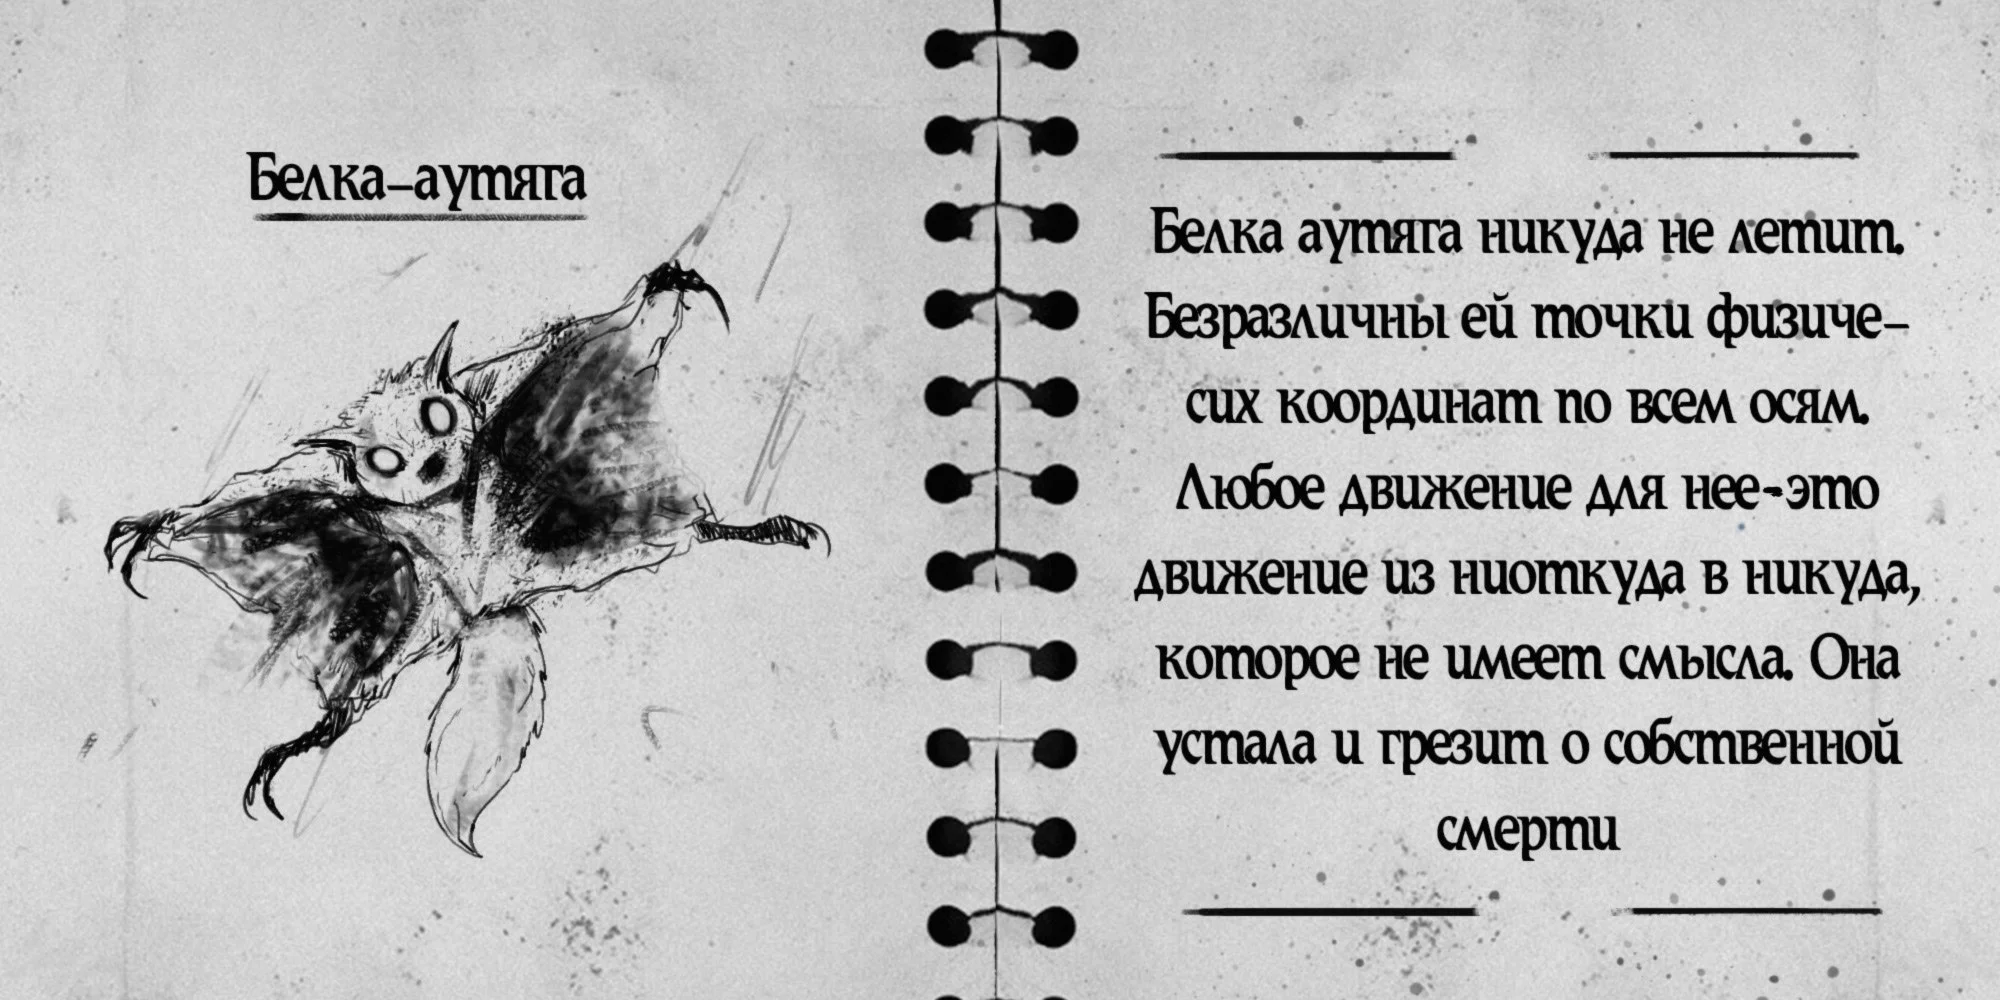 Белка-аутяга
Белка аутяга никуда не летит.
Безразличны ей точки физиче-
сих координат по всем осям.
Любое движение для нее-это
движение из ниоткуда в никуда,
которое не имеет смысла. Она
устала и грезит о собственной
смерти